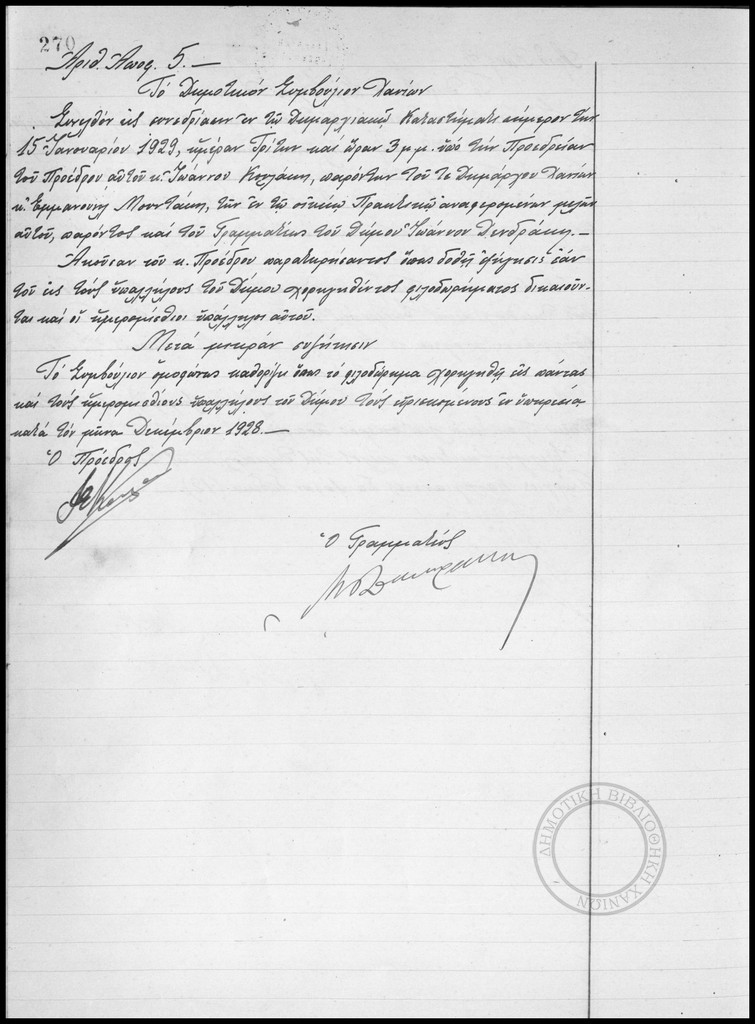 270
Ἀριθ. Ἀποφ. 5.—
Τό Δημοτικόν Συμβούλιον Χανίων
Συνελθόν εἰς συνεδρίασιν ἐν τῷ Δημαρχιακῷ Καταστήματι σήμερον τήν
15 Ἰανουαρίου 1929, ἡμέραν Τρίτην καί ὥραν 3 μ.μ. ὑπό τήν Προεδρείαν
τοῦ Προέδρου αὐτοῦ κ. Ἰωάννου, παρόντων τοῦ τε Δημάρχου Χανίων
κ. Ἐμμανουήλ Μουντάκη, τῶν ἐν τῷ οἰκείῳ Πρακτικῷ ἀναφερομένων μελῶν
αὐτοῦ, παρόντος καί τοῦ Γραμματέως τοῦ Δήμου Ἰωάννου Δενδράκη.—
Ἀκοῦσαν τοῦ κ. Προέδρου παρατηρήσαντος ὅπως δοθῇ ἐξήγησις ἐάν
τοῦ εἰς τούς ὑπαλλήλους τοῦ Δήμου χορηγηθέντος φιλοδωρήματος δικαιοῦν-
ται καί οἱ ἡμερομίσθιοι ὑπάλληλοι αὐτοῦ.
Μετά μικράν συζήτησιν
Τό Συμβούλιον ὁμοφώνως καθορίζει ὅπως τό φιλοδώρημα χορηγηθῇ εἰς πάντας
καί τούς ἡμερομισθίους ὑπαλλήλους τοῦ Δήμου τούς εὑρισκομένους ἐν ὑπηρεσίᾳ
κατά τόν μῆνα Δεκέμβριον 1928.—
Ὁ Πρόεδρος
Ὁ Γραμματεύς
ΔΗΜΟΤΙΚΗ ΒΙΒΛΙΟΘΗΚΗ ΧΑΝΙΩΝ